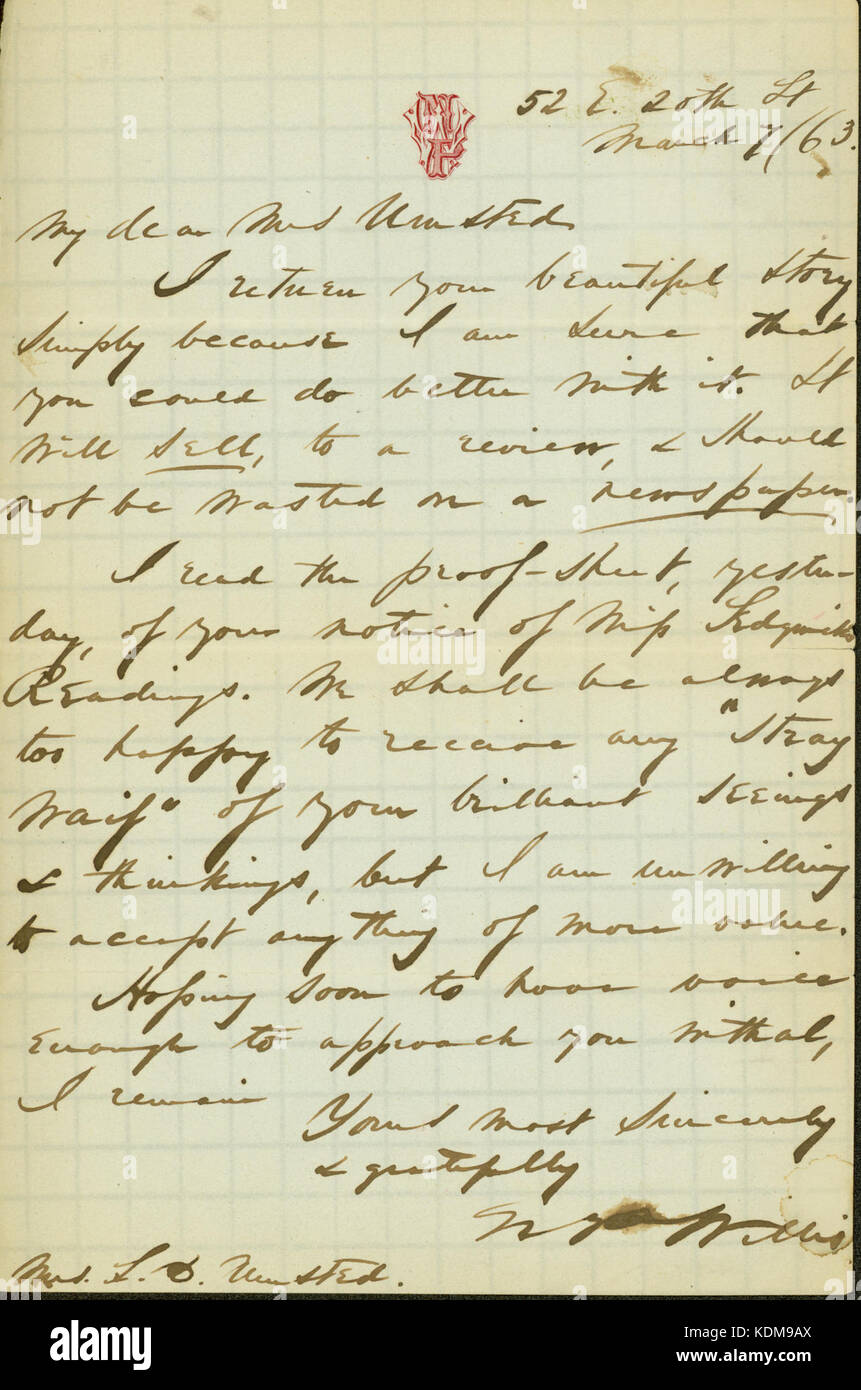 52 E. 20th St
March 7/63.
My dear Mrs Umsted
I return your beautiful story
simply because I am sure that
you could do better with it. It
will sell, to a review, & should
not be wasted on a newspaper.
I read the proof-sheet, yester-
day, of your notice of Miss Sedgwick's
Readings. We shall be always
too happy to receive any "stray
waif" of your brilliant seeings
& thinkings, but I am unwilling
to accept anything of more value.
Hoping soon to have voice
enough to approach you withal,
I remain
Yours most sincerely
& gratefully
Willis
Mrs. L. D. Umsted.
alamy
Image ID: KDM9AX
www.alamy.com